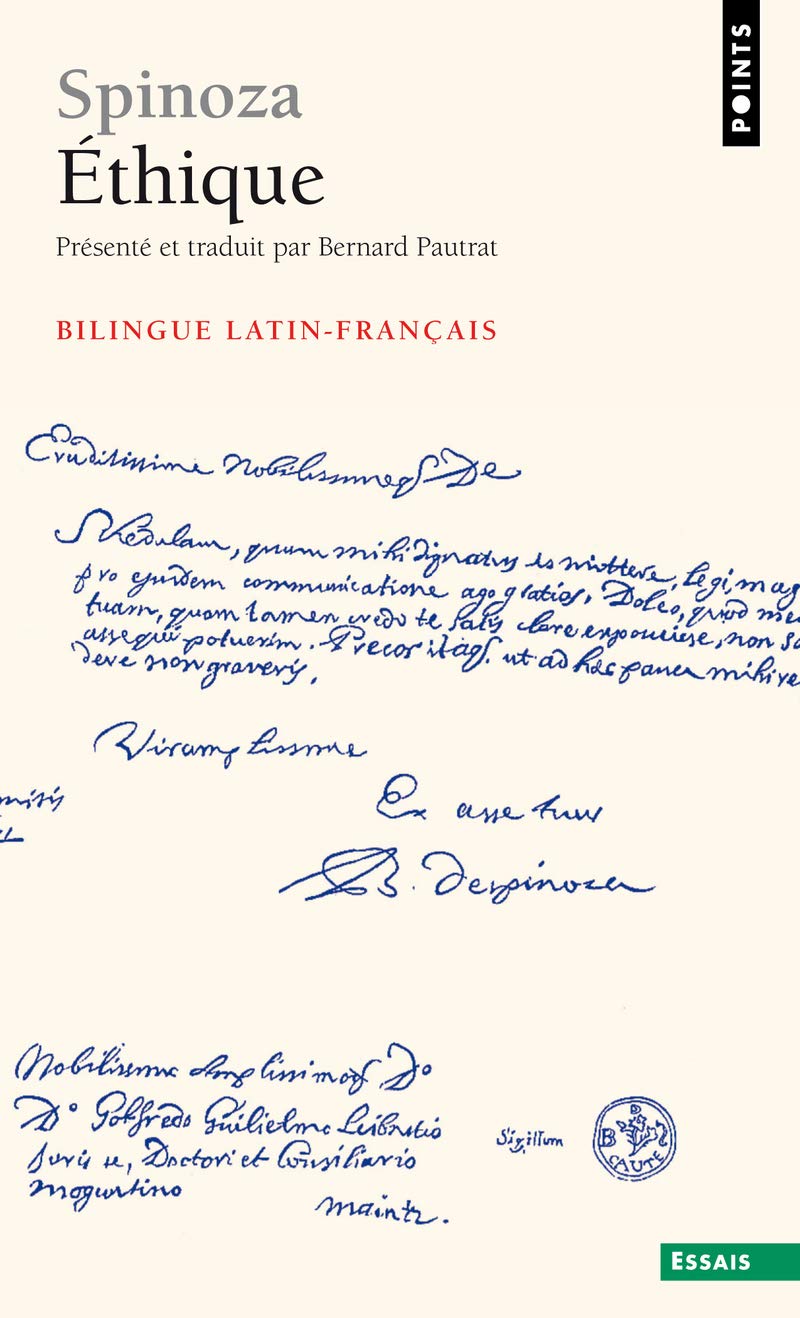 POINTS
Spinoza
Éthique
Présenté et traduit par Bernard Pautrat
BILINGUE LATIN-FRANÇAIS
Eruditissime Nobilissimeqꝫ De
Schedulam, quam mihi dignatus es mittere, legi, mag
pro ejusdem communicatione ago gratias, Doleo, quod me
tuam, quam tamen credo te satis clare exposuisse, non sa
assequi potuerim. Precor itaqꝫ ut ad hæc pauca mihi re
dere non graveris,
Vir amplissime
Ex asse tuus
B. despinoza
Nobilissimo Amplissimoqꝫ Do
Do Gotfredo Guilielmo Leibnitio
Juris u, Doctori et Consiliario
moguntino
maintz.
Sigillum
B D S
CAUTE
ESSAIS